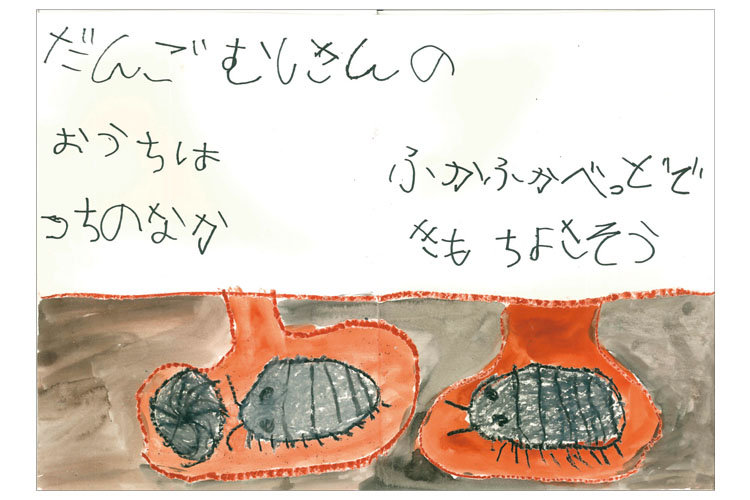 だんごむしさんの
おうちは
つちのなか
ふかふかべっどで
きもちよさそう